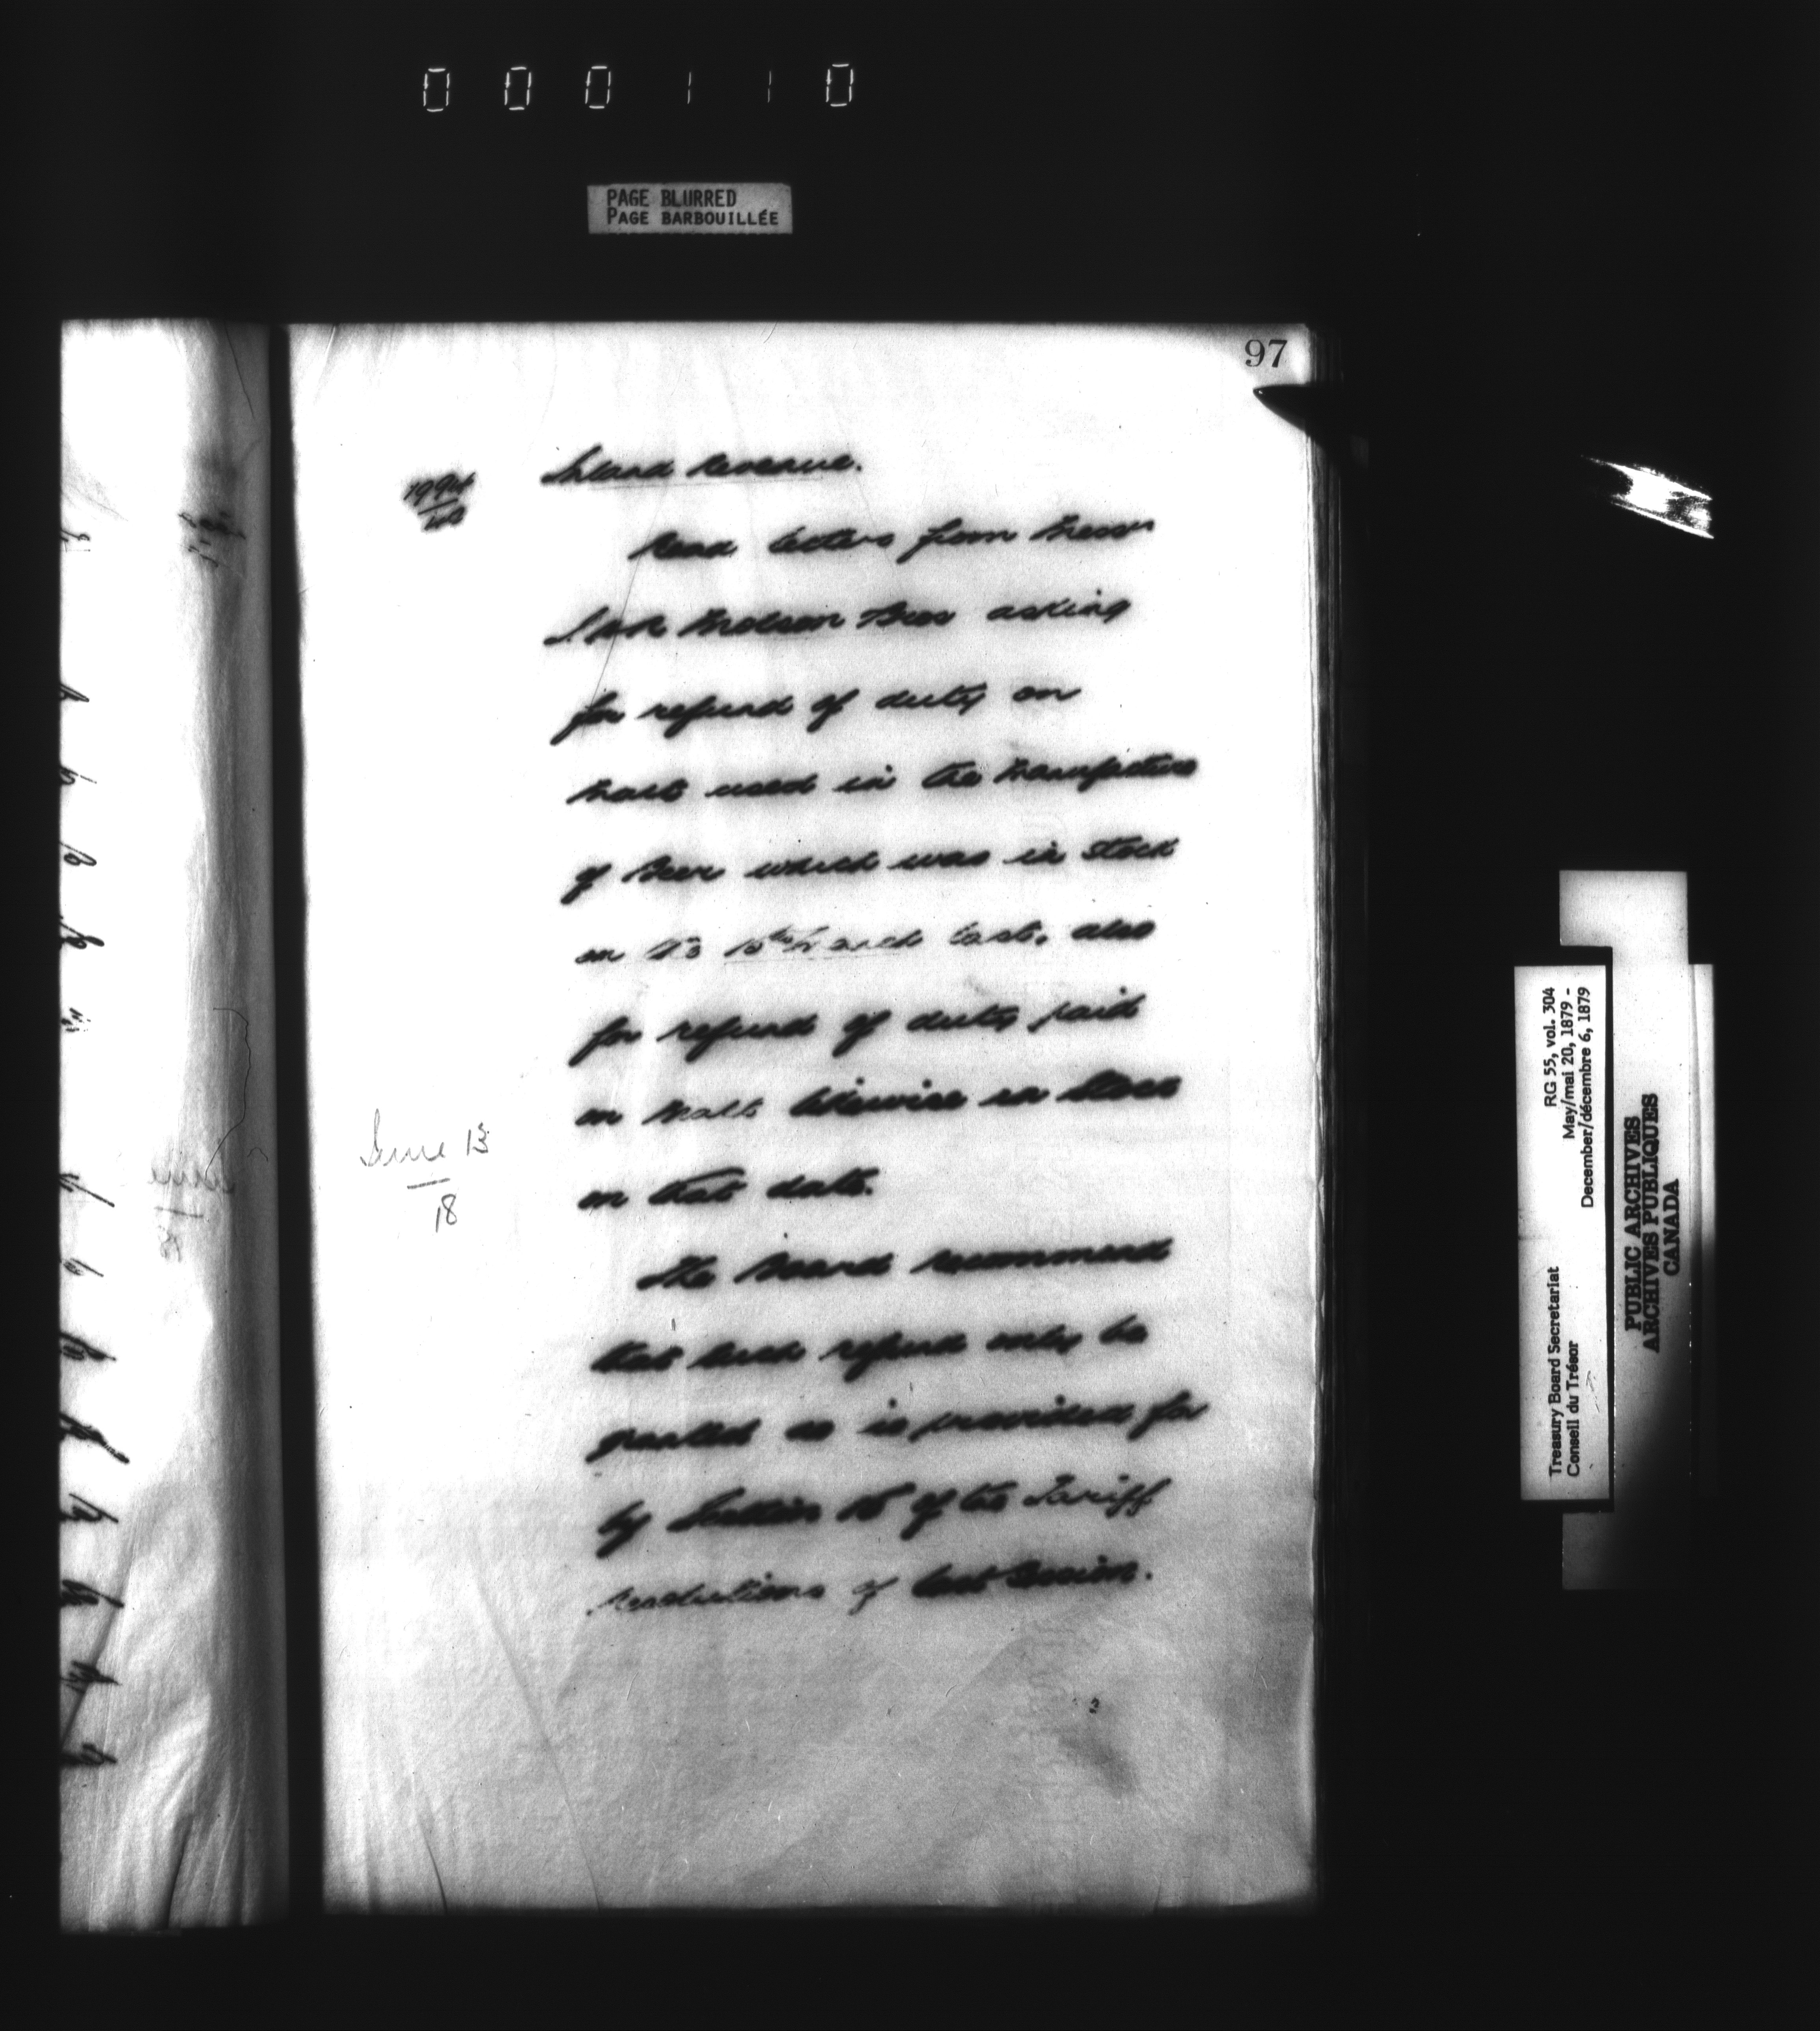 000110
PAGE BLURRED
PAGE BARBOUILLÉE
97
Inland Revenue.
Read letters from Messrs
J. H R Molson Bros asking
for refund of duty on
Malt used in the Manufacture
of Beer which was in stock
on the March last, also
for refund of duty paid
on Malt likewise in Stock
on that date.
June 13
18
The Board recommend
that such refund only be
granted as is provided for
by Section of the Tariff
Resolutions of last Session.
RG 55, vol. 304
May/mai 20, 1879 -
December/décembre 6, 1879
Treasury Board Secretariat
Conseil du Trésor
PUBLIC ARCHIVES
ARCHIVES PUBLIQUES
CANADA